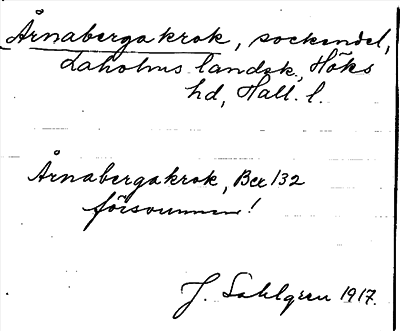 Årnabergakrok, sockendel,
Laholms landsk., Höks
hd, Hall. l.
Årnabergakrok, Ber 132
försvunnen!
J. Sahlgren 1917.